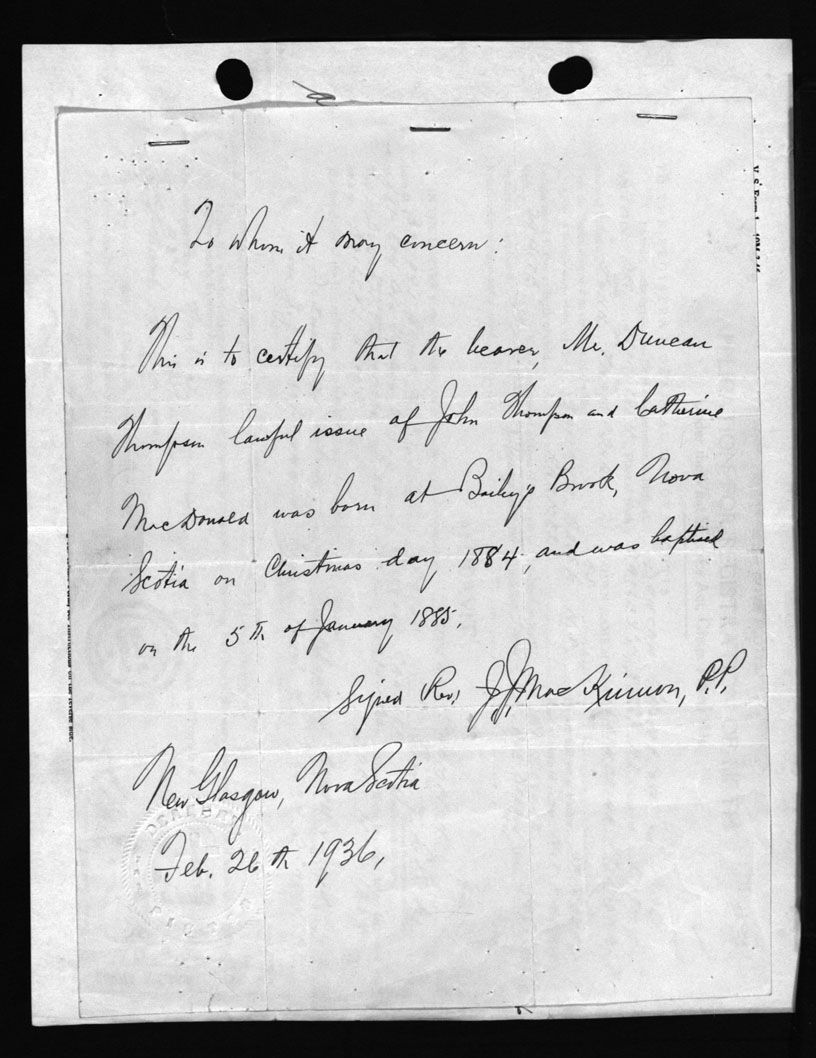 To whom it may concern:
This is to certify that the bearer, Mr. Duncan
Thompson lawful issue of John Thompson and Catherine
MacDonald was born at Bailey's Brook, Nova
Scotia on Christmas day 1884, and was baptised
on the 5th of January 1885.
Signed Rev. J.J. MacKinnon, P.P.
New Glasgow, Nova Scotia
Feb. 26th 1936,